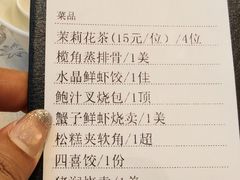 菜品
茉莉花茶(15元/位）/4位
榄角蒸排骨/1美
水晶鲜虾饺/1佳
鲍汁叉烧包/1顶
蟹子鲜虾烧卖/1美
松糕夹软角/1超
四喜饺/1份